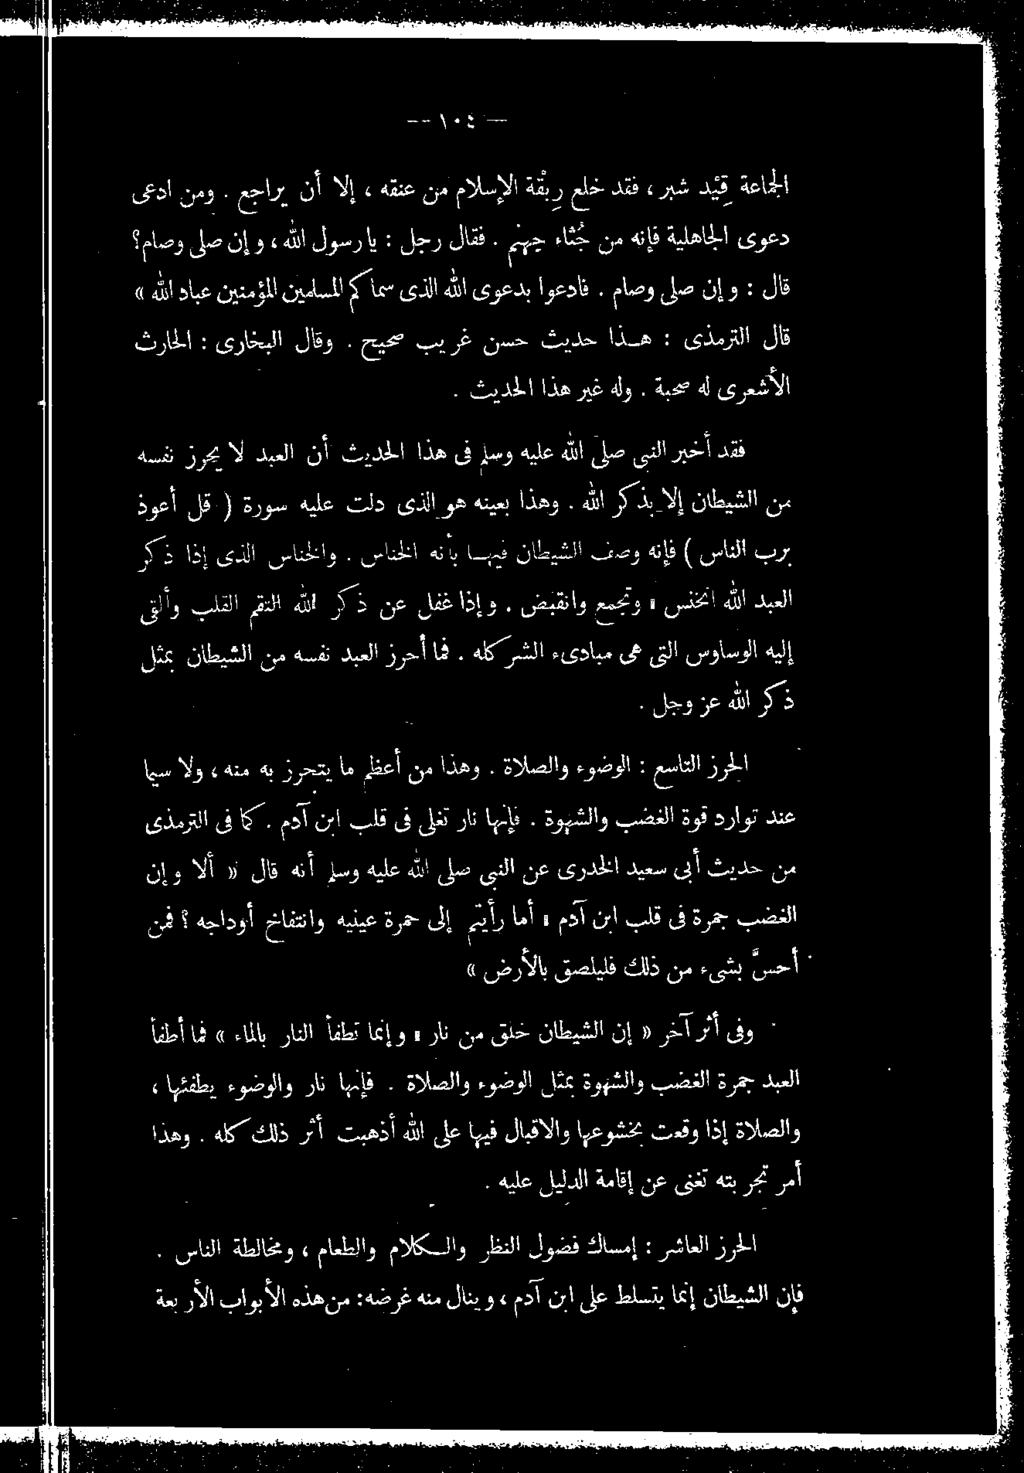 — ١٠٤ —
الجماعة قِيْد شبر ، فقد خلع رِبْقة الإسلام من عنقه ، إلا أن يراجع . ومن ادعى
دعوى الجاهلية فإنه من جُثاء جهنم . فقال رجل : يا رسول الله ، وإن صلى وصام؟
قال : وإن صلى وصام . فادعوا بدعوى الله الذى سماكم المسلمين المؤمنين عباد الله »
قال الترمذى : هـذا حديث حسن غريب صحيح . وقال البخارى : الحارث
الأشعرى له صحبة . وله غير هذا الحديث .
فقد أخبر النبى صلى الله عليه وسلم فى هذا الحديث أن العبد لا يحرز نفسه
من الشيطان إلا بذكر الله . وهذا بعينه هو الذى دلت عليه سورة ( قل أعوذ
برب الناس ) فإنه وصف الشيطان فيهـا بأنه الخناس . والخناس الذى إذا ذكر
العبد الله انخنس ، وتجمع وانقبض . وإذا غفل عن ذكر الله التقم القلب وألقى
إليه الوساوس التى هى مبادىء الشر كله . فما أحرز العبد نفسه من الشيطان بمثل
ذكر الله عز وجل .
الحرز التاسع : الوضوء والصلاة . وهذا من أعظم ما يتحرز به منه ، ولا سيما
عند توارد قوة الغضب والشهوة . فإنها نار تغلى فى قلب ابن آدم . كما فى الترمذى
من حديث أبى سعيد الخدرى عن النبى صلى الله عليه وسلم أنه قال « ألا وإن
الغضب جمرة فى قلب ابن آدم ، أما رأيتم إلى حمرة عينيه وانتفاخ أوداجه ؟ فمن
أحسَّ بشىء من ذلك فليلصق بالأرض »
وفى أثر آخر « إن الشيطان خلق من نار ، وإنما تطفأ النار بالماء » فما أطفأ
العبد جمرة الغضب والشهوة بمثل الوضوء والصلاة . فإنها نار والوضوء يطفئها ،
والصلاة إذا وقعت بخشوعها والاقبال فيها على الله أذهبت أثر ذلك كله . وهذا
أمر تجربته تغنى عن إقامة الدليل عليه .
الحرز العاشر : إمساك فضول النظر والـكلام والطعام ، ومخالطة الناس .
فإن الشيطان إنما يتسلط على ابن آدم ، وينال منه غرضه : من هذه الأبواب الأربعة